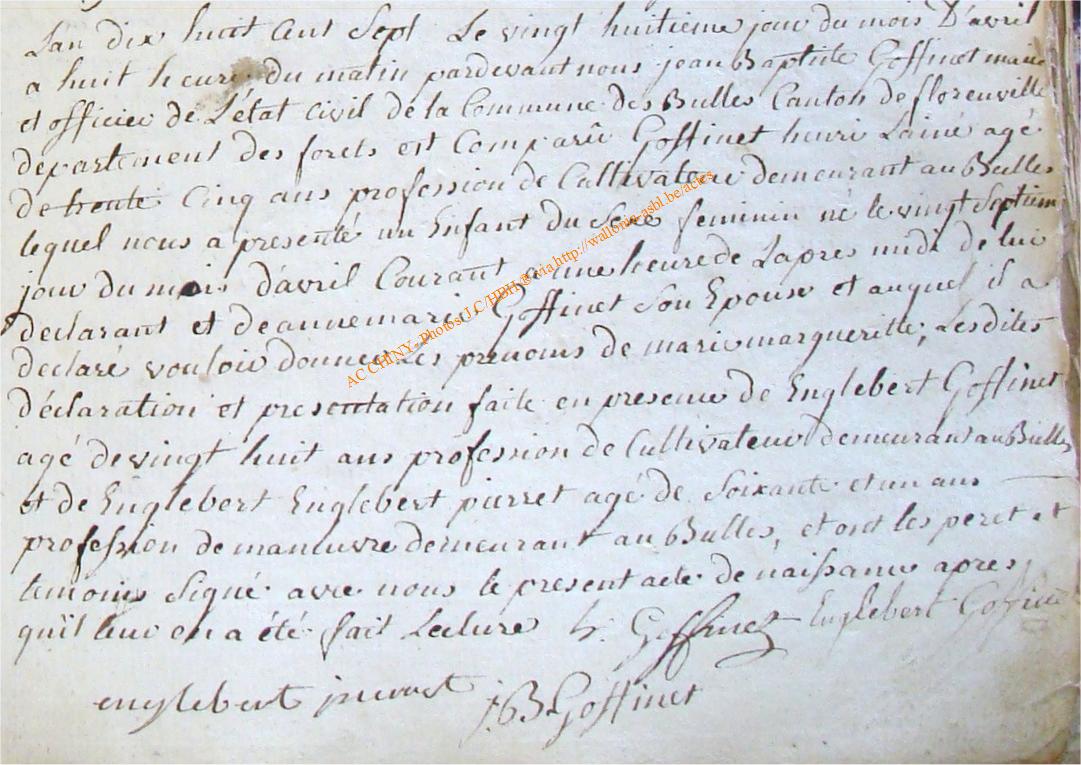 L'an dix huit Cent Sept Le vingt huitieme jour du mois D'avril
a huit heure du matin pardevant nous jean Baptiste Goffinet maire
et officier de L'état Civil de la Commune des Bulles Canton de florenville
departement des forets est Comparû Goffinet henri Lainé agé
de trente Cinq ans profession de Cultivateur demeurant au Bulles
lequel nous a presenté un Enfant du Sexe feminin né le vingt Septiem
jour du mois d'avril Courant a une heure de Lapres midi de lui
declarant et de anne marie Goffinet Son Epouse et auquel il a
declaré vouloir donner Les prenoms de marie margueritte, Lesdites
déclaration et presentation faite en presence de Englebert Goffinet
agé de vingt huit ans profession de Cultivateur demeurant au Bulles
et de Englebert Englebert pierret agé de Soixante et un ans
profession de manœuvre demeurant au Bulles, et ont les peret et
temoins Signé avec nous le present acte de naissance apres
qu'il leur en a été fait Lecture h. Goffinet Englebert Goffinet
englebert JBGoffinet
AC CHINY- Photos J.C/HBH @ via http://wallonia-asbl.be/actes